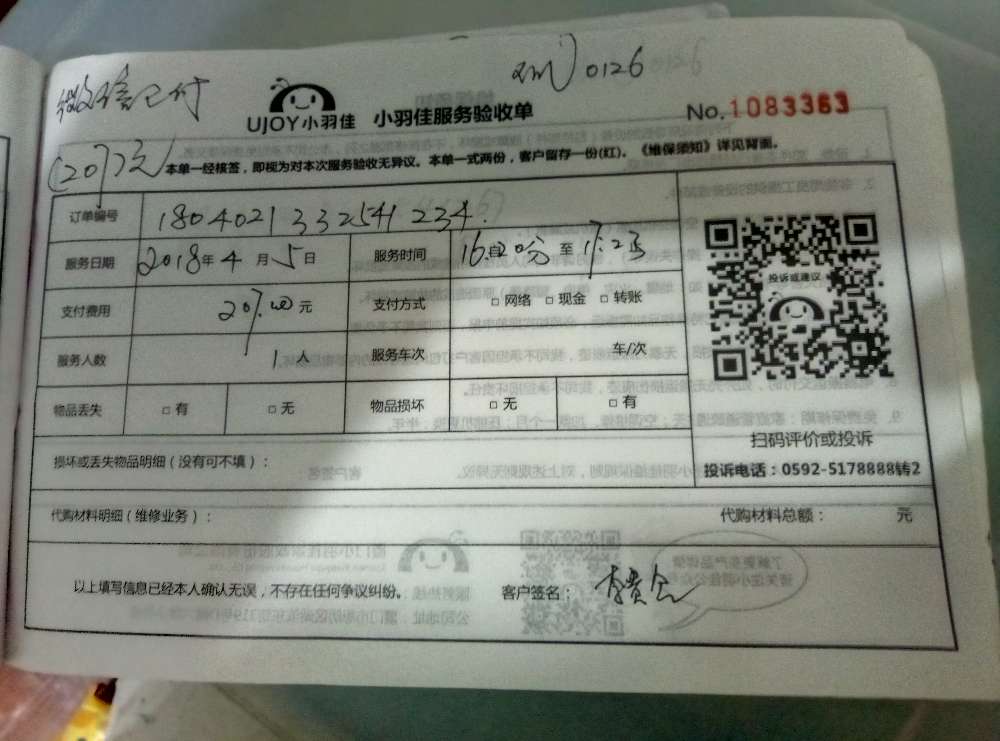 微信已付
0126
UJOY小羽佳 小羽佳服务验收单 No.1083363
(207元)
本单一经核签，即视为对本次服务验收无异议。本单一式两份，客户留存一份(红)。《维保须知》详见背面。
订单编号 1804021332541234
服务日期 2018年4月5日 服务时间 16: 至 17:25
支付费用 207.00元 支付方式 □ 网络 □ 现金 □ 转账
服务人数 1人 服务车次 车/次
物品丢失 □ 有 □ 无 物品损坏 □ 无 □ 有
投诉或建议
扫码评价或投诉
投诉电话：0592-5178888转2
损坏或丢失物品明细（没有可不填）：
代购材料明细（维修业务）： 代购材料总额： 元
以上填写信息已经本人确认无误，不存在任何争议纠纷。 客户签名：